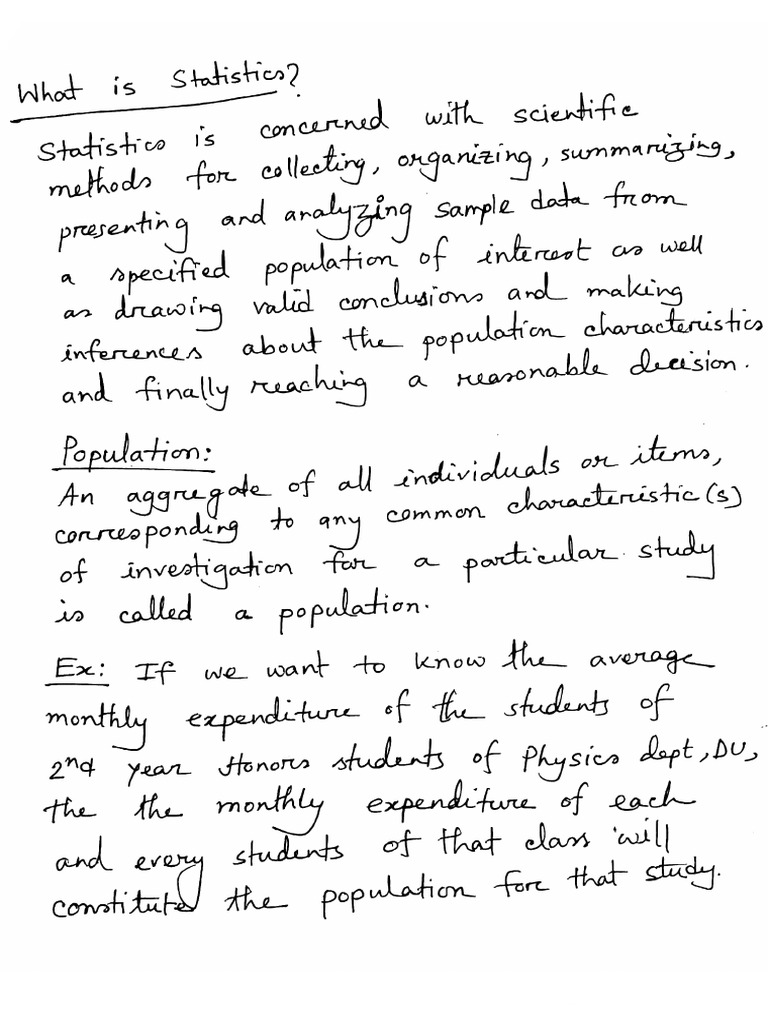 What is Statistics?
Statistics is concerned with scientific
methods for collecting, organizing, summarizing,
presenting and analyzing sample data from
a specified population of interest as well
as drawing valid conclusions and making
inferences about the population characteristics
and finally reaching a reasonable decision.
Population:
An aggregate of all individuals or items,
corresponding to any common characteristic(s)
of investigation for a particular study
is called a population.
Ex: If we want to know the average
monthly expenditure of the students of
2nd year Honors students of Physics dept, DU,
the the monthly expenditure of each
and every students of that class will
constitute the population for that study.